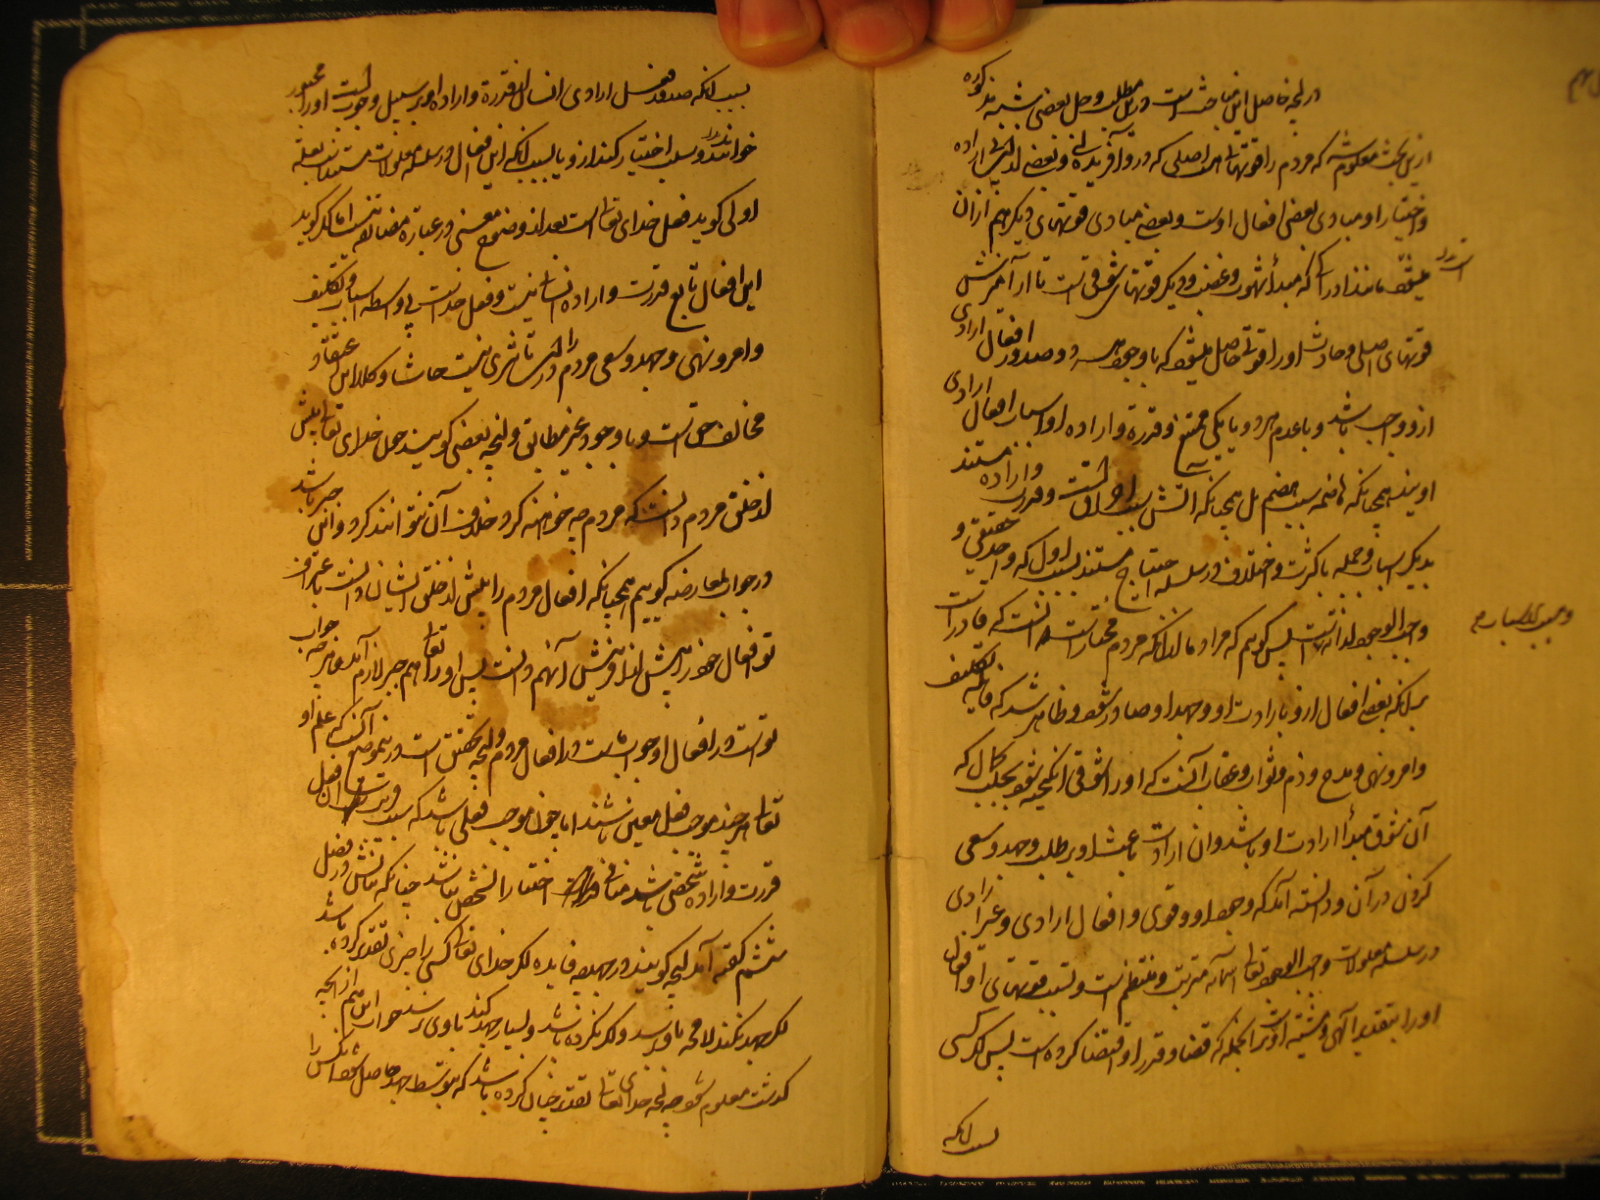 در آنچه حاصل این مباحث است درین مطلب و حل بعضی شبه مذکوره
ازین بحث معلوم شد که مردم را قوتهاست اصلی که درو آفریده‌اند و بعضی اراده
و اختیار او مبادی بعضی افعال اوست و بعضی مبادی قوتهای دیگر هم از آن
میشود مانند ادراک که مبدأ شهوت و غضب و دیگر قوتهای شوقی است تا از آمیزش
قوتهای اصلی و حادث او را قوتی حاصل میشود که با وجود همه و صدور افعال ارادی
ازو واجب باشد و با عدم هر دو یا یکی ممتنع و قدرت و اراده او اسباب افعال ارادی
اویند همچنانکه هاضمه سبب هضم بل همچنانکه آتش سبب احراقست و قدرت و اراده مستند
بدیگر اسباب و جمله با کثرت و اختلاف در سلسله احتیاج مستند بسبب اول که واحد حقیقی و
واجب الوجود لذاته است پس گوییم که مراد ما از آنکه مردم مختارست آنست که قادر است
بر آنکه بعضی افعال ازو بارادت او و جهد او صادر شود و ظاهر شد که فایده تکلیف
و امر و نهی و مدح و ذم و ثواب و عقاب آنست که او را شوقی انگیخته شود بجلب کمال که
آن شوق مبدأ ارادت او باشد و آن ارادت باعث او بر طلب و جهد و سعی
کردن در آن و دانسته آمد که وجود او و قوی و افعال ارادی و غیر ارادی
در سلسله معلولات واجب الوجود تعالی اسمائه مترتب و منتظم است و نسبت قوتهای او و افعال
او را بتقدیر الهی و مشیت او بر آنجمله که قضا و قدر او اقتضا کرده است پس اگر کسی
بسبب آنکه
بسبب آنکه صدور فعل ارادی انسان از قدرت و اراده او بر سبیل وجوبست او را مجبور
خوانند و سلب اختیار کند ازو یا بسبب آنکه این افعال در سلسله معلولات مستند است بعلة
اولی گوید فعل خدای تعالی است بعد از وضوح معنی در عبارة مضایقه نیست اما اگر گوید
این افعال تابع قدرت و اراده انسان نیست و فعل خداست بی واسطه اسباب و تکلیف
و امر و نهی و جهد و سعی مردم را در آن تأثیری نیست حاشا و کلا این اعتقاد
مخالف حق است و با وجود غیر مطابق و آنچه بعضی گویند چون خدای تعالی پیش
از خلق مردم دانست که مردم چه خواهند کرد خلاف آن نتوانند کرد و این جبر باشد
در جواب بمعارضه گوییم همچنانکه افعال مردم را پیش از خلق ایشان دانست باعتراف
تو افعال خود را پیش از آفرینش آنهم دانست پس او را تعالی هم جبر لازم آمد و هرچه جواب
تو است در افعال او جواب ماست در افعال مردم و آنچه تحقیق است درین موضع آنست که علم او
تعالی هر چند موجب فعل معین باشد اما چون موجب فعلی باشد که سبب قریب آن فعل
قدرت و اراده شخصی باشد منافی اختیار آن شخص نباشد چنانکه بیانش در فصل
ششم گفته آمد آنچه گویند در جهد چه فایده اگر خدای تعالی کسی را چیزی تقدیر کرده باشد
اگر جهد نکند لامحاله باو رسد و اگر نکرده باشد و بسیار جهد کند باوی نرسد جواب این هم از آنچه
گذشت معلوم شود چه آنچه خدای تعالی تقدیر چنان کرده باشد که بتوسط جهد حاصل شود آنکس را